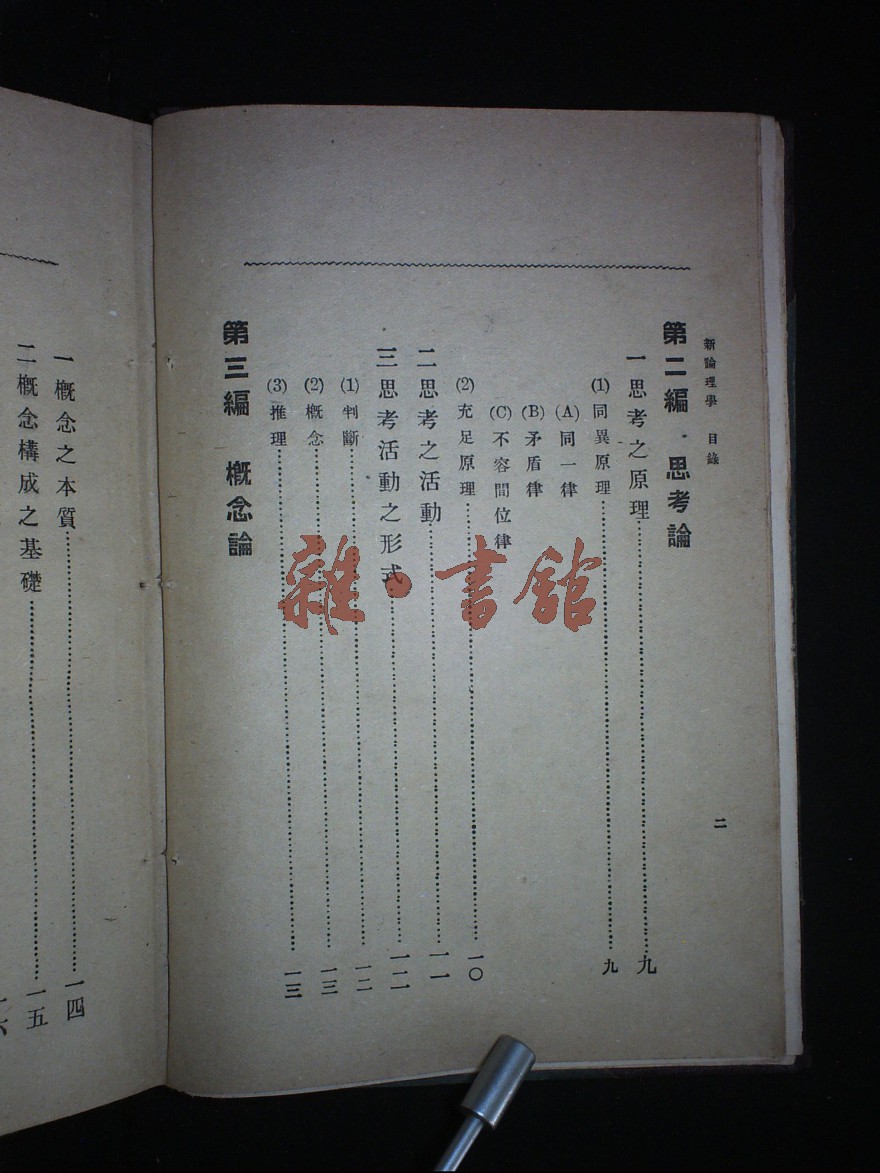 新論理學 目錄
二
第二編 思考論
一 思考之原理 九
(1) 同異原理 九
(A) 同一律
(B) 矛盾律
(C) 不容間位律
(2) 充足原理 一〇
二 思考之活動 一一
三 思考活動之形式 一二
(1) 判斷 一二
(2) 概念 一三
(3) 推理 一三
第三編 概念論
一 概念之本質 一四
二 概念構成之基礎 一五
雜·書館